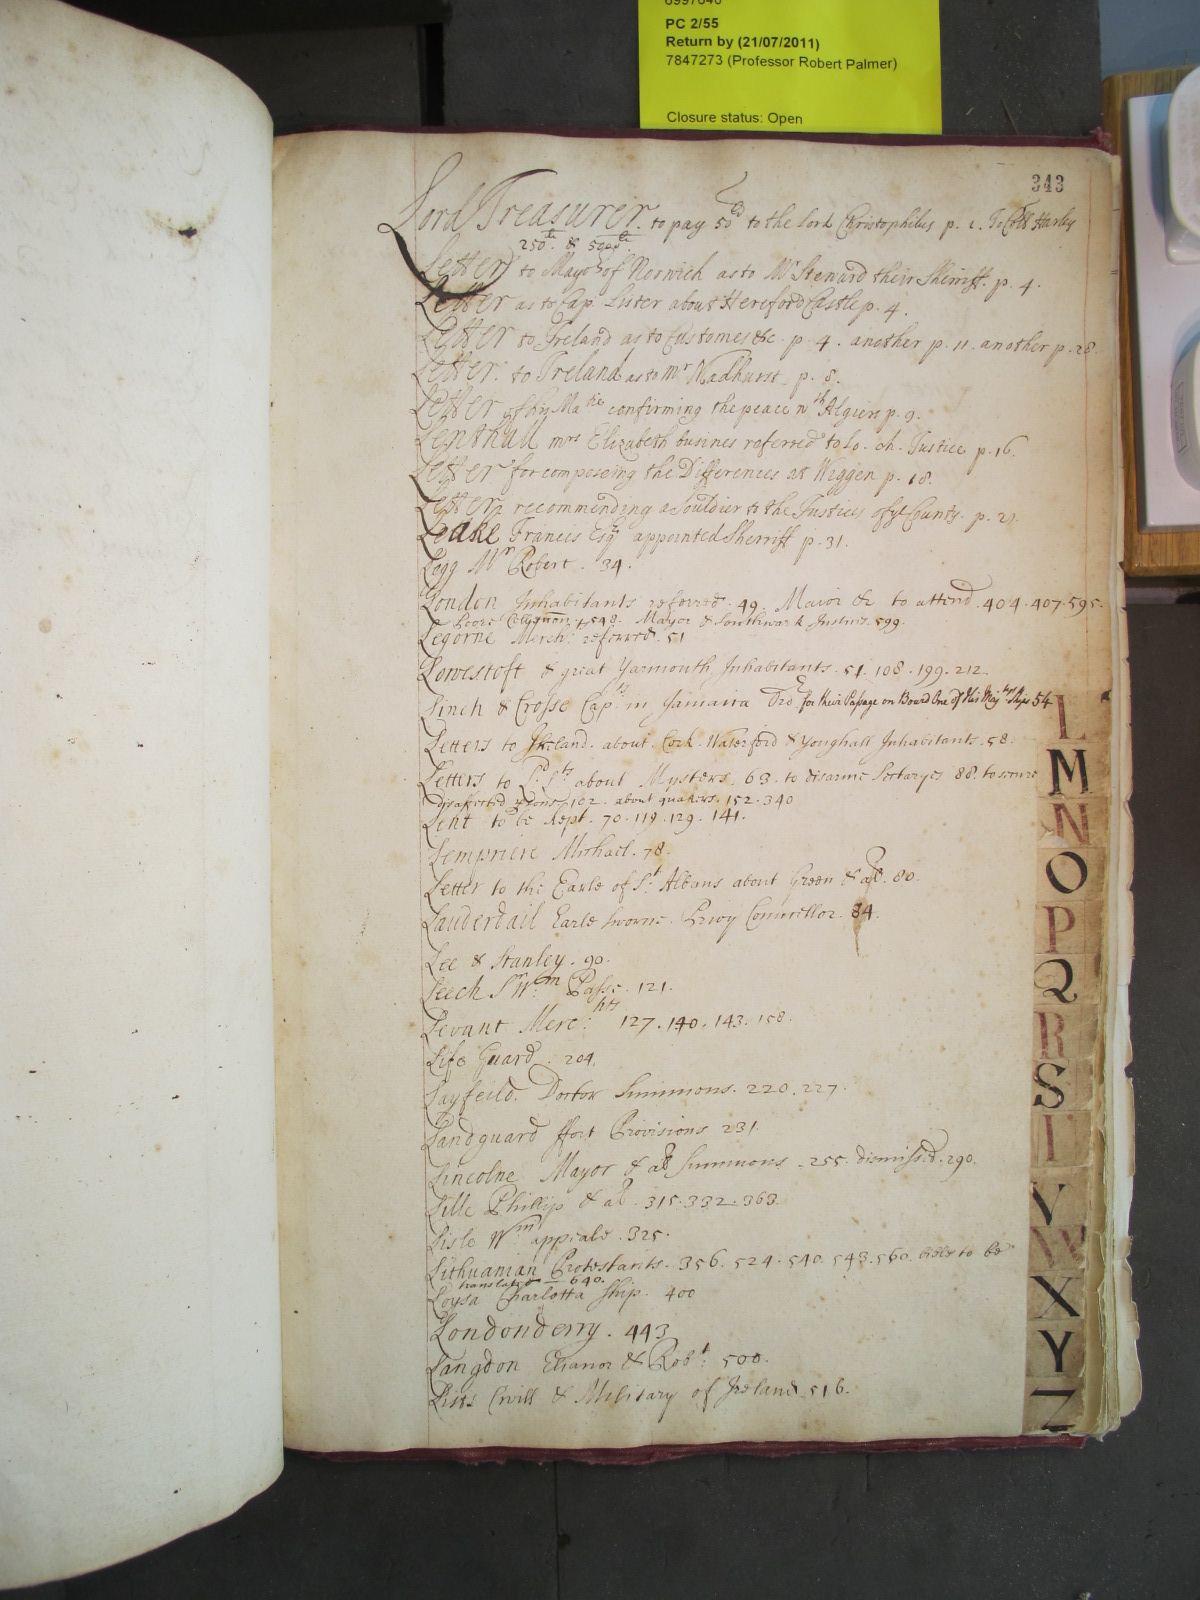 6997646
PC 2/55
Return by (21/07/2011)
7847273 (Professor Robert Palmer)
Closure status: Open
343
Lord Treasurer. to pay 50 to the lord Christophilus p. 1. To Coll Harley
250 & 500
Letter to Mayor of Norwich as to Mr Steward their Sherriff. p. 4.
Letter as to Cap. Lister about Hereford Castle p. 4.
Letter to Ireland as to Customes &c. p. 4. another p. 11. another p. 28
Letter. to Ireland as to Mr Wadhurst p. 8.
Letter of his Matie confirming the peace wth Algiers p. 9.
Lenthall mrs Elizabeth busines referred to lo. ch. Justice p. 16.
Letter for composeing the Differences at Wiggen p. 18.
Letter recommending a Souldier to the Justices of ye County. p. 21
Leake Francis Esqr appointed Sherriff p. 31.
Legg Mr Robert. 34.
London Inhabitants referred. 49. Maior &c to attend. 404. 407. 595.
Poore 548. Mayor & Southwark Justices. 599.
Legorne Mercht referred. 51
Lowestoft & great Yarmouth Inhabitants. 51. 108. 199. 212
Linch & Crosse Capts in Jamaica Ord for their Passage on Board One of His Majtys Ships 54
Letters to Ireland. about Cork. Waterford & Yonghall Inhabitants. 58.
Letters to Ld Lts about Musters 63. to disarme Sectaryes 88. to secure
disaffected psons 102. about quakers. 152. 340
Lent to be kept. 70. 119. 129. 141.
Lempriere Michael. 78.
Letter to the Earle of St Albans about Green & al. 80.
Lauderdail Earle sworne Privy Councellor. 84.
Lee & Stanley. 90.
Leech Sr Wm Passe. 121.
Levant Merchts 127. 140. 143. 158.
Life Guard. 204.
Layfeild. Doctor Summons. 220. 227.
Landguard ffort Provisions 231.
Lincolne Mayor & al Summons. 255. dismissed. 290.
Lille Phillip & al. 315. 332. 363.
Lisle Wm appeale. 325.
Lithuanian Protestants. 356. 524. 540. 543. 560. bible to be
translated 640.
Loysa Charlotta Ship. 400
Londonderry. 443
Langdon Elianor & Robt: 500.
Lists Civill & Military of Ireland. 516.
L
M
N
O
P
Q
R
S
T
V
W
X
Y
Z